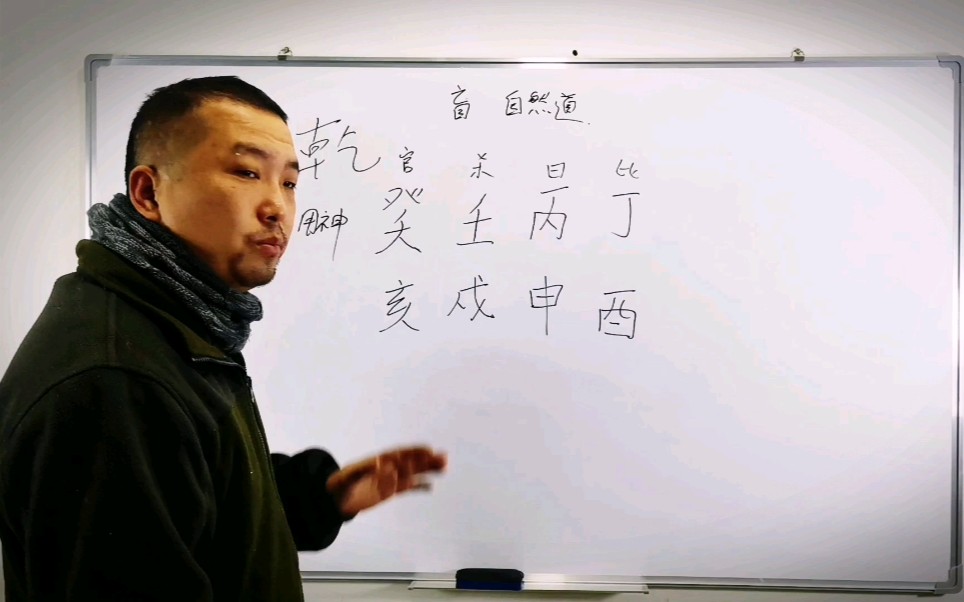 盲 自然道
乾 官 杀 日 比
用神 癸 壬 丙 丁
亥 戌 申 酉